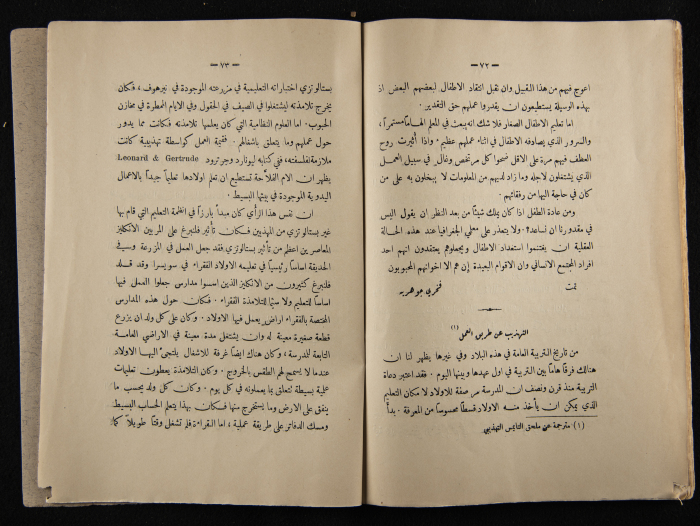 — ٧٢ —
اعوج فيهم من هذا القبيل وان نقبل انتقاد الاطفال لبعضهم البعض اذ
بهذه الوسيلة يستطيعون ان يقدروا عملهم حق التقدير .
اما تعليم الاطفال الصغار فلا شك انه يبعث في المعلم الهاماً مستمراً ،
والسرور الذي يصادفه الاطفال في اثناء عملهم عظيم . واذا أثيرت روح
العطف فيهم مرة على الاقل ضحوا كل مرتخص وغال في سبيل العمل
الذي يشتغلون لاجله وما زاد لديهم من المعلومات لا يبخلون به على من
كان في حاجة اليها من رفقائهم .
ومن عادة الطفل اذا كان يملك شيئاً من بعد النظر ان يقول اليس
في مقدورنا ان نساعد ؟ ولا يتعذر على معلمي الجغرافيا عند هذه الحالة
العقلية ان يغتنموا استعداد الاطفال ويجعلوهم يعتقدون انهم احد
افراد المجتمع الانساني وان الاقوام البعيدة إن هم الا اخوانهم المحبوبون
تمت
فخري جوهرية
التهذيب عن طريق العمل (١)
من تاريخ التربية العامة في هذه البلاد وفي غيرها يظهر لنا ان
هنالك فرقاً هاماً بين التربية في اول عهدها وبينها اليوم . فقد اعتبر دعاة
التربية منذ قرن ونصف ان المدرسة مرصفة للاولاد لا مكان التعليم
الذي يمكن ان يأخذ منه الاولاد قسطاً محسوساً من المعرفة . بدأ
(١) مترجمة عن ملحق التايمس التهذيبي
— ٧٣ —
بستالوتزي اختباراته التعليمية في مزرعته الموجودة في نيرهوف ، فكان
يخرج تلامذته ليشتغلوا في الصيف في الحقول وفي الايام الممطرة في مخازن
الحبوب . اما العلوم النظامية التي كان يعلمها تلامذته فكانت مما يدور
حول عملهم وما يتعلق باشغالهم . فقيمة العمل كواسطة تهذيبية كانت
ملازمة لفلسفته ، ففي كتابه ليونارد وجرترود Leonard & Gertrude
يظهر ان الام الفلاحة تستطيع ان تعلم اولادها تعليماً جيداً بالاعمال
اليدوية الموجودة في بيتها البسيط .
ان نفس هذا الرأي كان مبدأ بارزاً في انظمة التعليم التي قام بها
غير بستالوتزي من المهذبين فكان تأثير فلنبرغ على المربين الانكليز
المعاصرين اعظم من تأثير بستالوتزي فقد جعل العمل في المزرعة وفي
الحديقة اساساً رئيسياً في تعليمه الاولاد الفقراء في سويسرا وقد قلد
فلنبرغ كثيرون من الانكليز الذين اسسوا مدارس جعلوا العمل فيها
اساساً للتعليم ولا سيما للتلامذة الفقراء . فكان حول هذه المدارس
المختصة بالفقراء اراضٍ يعمل فيها الاولاد . وكان على كل ولد ان يزرع
قطعة صغيرة معينة له وان يشتغل مدة معينة في الاراضي العامة
التابعة للمدرسة ، وكان هناك ايضاً غرفة للاشغال يلتجئ اليها الاولاد
عندما لا يسمح لهم الطقس بالخروج . وكان التلامذة يعطون تعليمات
عملية بسيطة تتعلق بما يعملونه في كل يوم . وكان كل ولد يحسب ما
ينفق على الارض وما يستخرج منها فكان بهذا يتعلم الحساب البسيط
ومسك الدفاتر على طريقة عملية ، اما القراءة فلم تشغل وقتاً طويلاً كما